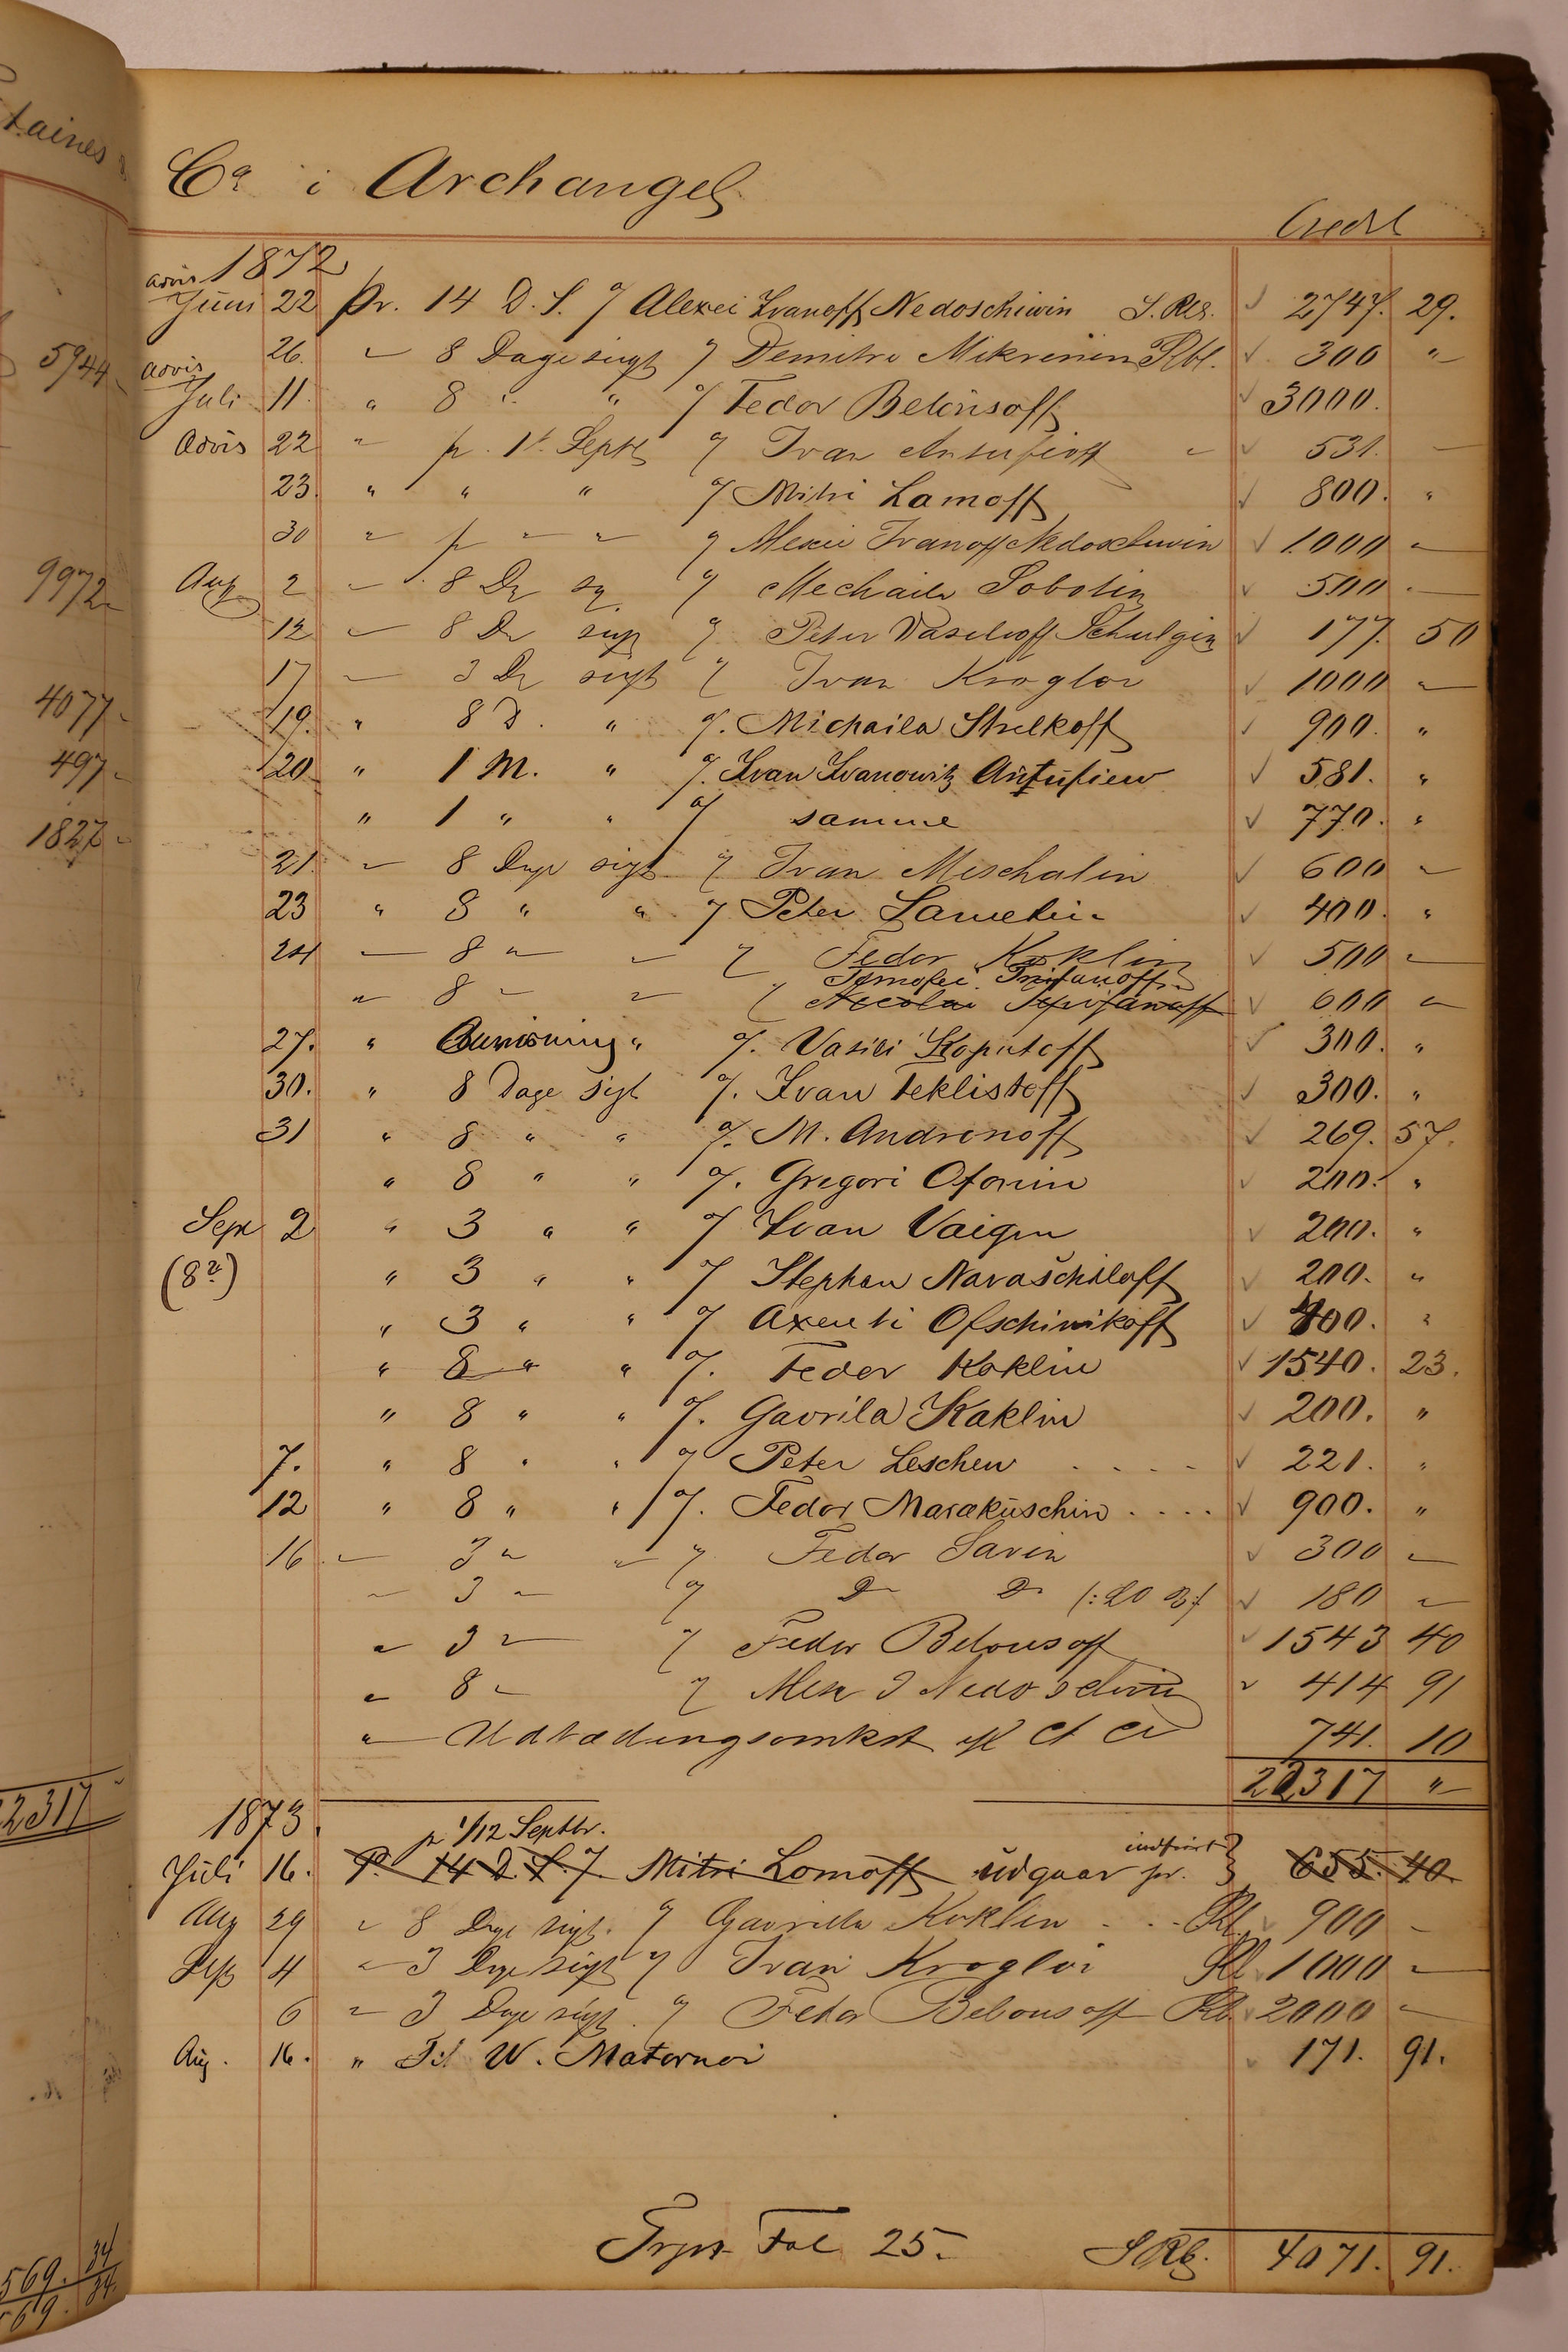 Ca i Archangel
Credit
1872
advis
Juni 22 pr. 14 D. S. % Alexei Ivanoff Nedoschiwin S. Rbl. 2747. 29.
26. " 8 Dage sigt % Demitri Rbl. 300 "
advis
Juli 11. " 8 " " % Fedor Belousoff 3000.
Advis 22 " p. 1t Septb % Ivan Antufieff " 531. —
23. " " " % Mitri Lamoff 800. "
30 " p " " % Alexei Ivanoff Nedoschiwin 1000 "
Aug 2 " 8 Dg sg % Mechaila Sobolin 500. —
12 " 8 Dg sigt % Peter Vasilioff Schulgin 177. 50
17 " 3 Dg sigt % Ivan Kroglov 1000 "
19. " 8 D. " %. Michaila Strelkoff 900. "
20 " 1 M. " %. Ivan Ivanowitz Antufiew 581. "
" 1 " " % samme 770. "
21. " 8 Dage sigt % Ivan Mischalin 600 "
23 " 8 " " % Peter 400. "
24 " 8 " " % Fedor Koklin 500 "
Timofei Trifanoff
" 8 " " % Nicolai Trifanoff 600 "
27. " Anvisning " %. Vasili Koputoff 300. "
30. " 8 Dage sigt %. Ivan Feklistoff 300. "
31 " 8 " " %. M. Andronoff 269. 57.
" 8 " " %. Gregori Ofonin 200. "
Sept 2 " 3 " " % Ivan Vaigin 200. "
" 3 " " % Stephan Navaschiloff 200. "
" 3 " " % Axenti Ofschinikoff 400. "
" 8 " " %. Fedor Koklin 1540. 23.
" 8 " " %. Gavrila Kaklin 200. "
7. " 8 " " % Peter Leschew . . . . 221. "
12 " 8 " " %. Fedor Marakuschin . . . . 900. "
16 " 3 " " % Fedor Savin 300 "
" 3 " % Do Do 180 "
" 3 " % Fedor Belousoff 1543 40
" 8 " % Alex I Nedoschivin 414 91
" 741. 10
22317 "
1873.
p 1/12 Septbr. indfriet
Juli 16. P. 14 D. S. % Mitri Lomoff udgaar pr. 655. 40.
Aug 29 " 8 Dage sigt. % Gavrilla Koklin . . . Rbl 900 —
Sept 4 " 3 Dage sigt % Ivan Kroglov Rbl 1000 "
6 " 3 Dage sigt. % Fedor Belousoff Rbl 2000 "
Aug. 16. " Til W. Maternoi 171. 91.
Fol 25. S Rbl. 4071. 91.
5944
9972
4077
497
1827
22317
569. 34
569. 34.